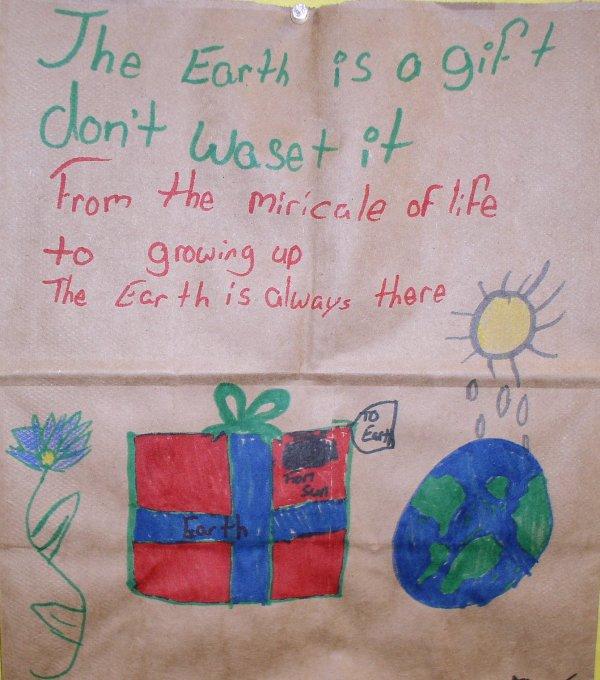 The Earth is a gift
don't waset it
From the miricale of life
to growing up
The Earth is always there
TO
Earth
From
Sun
Earth